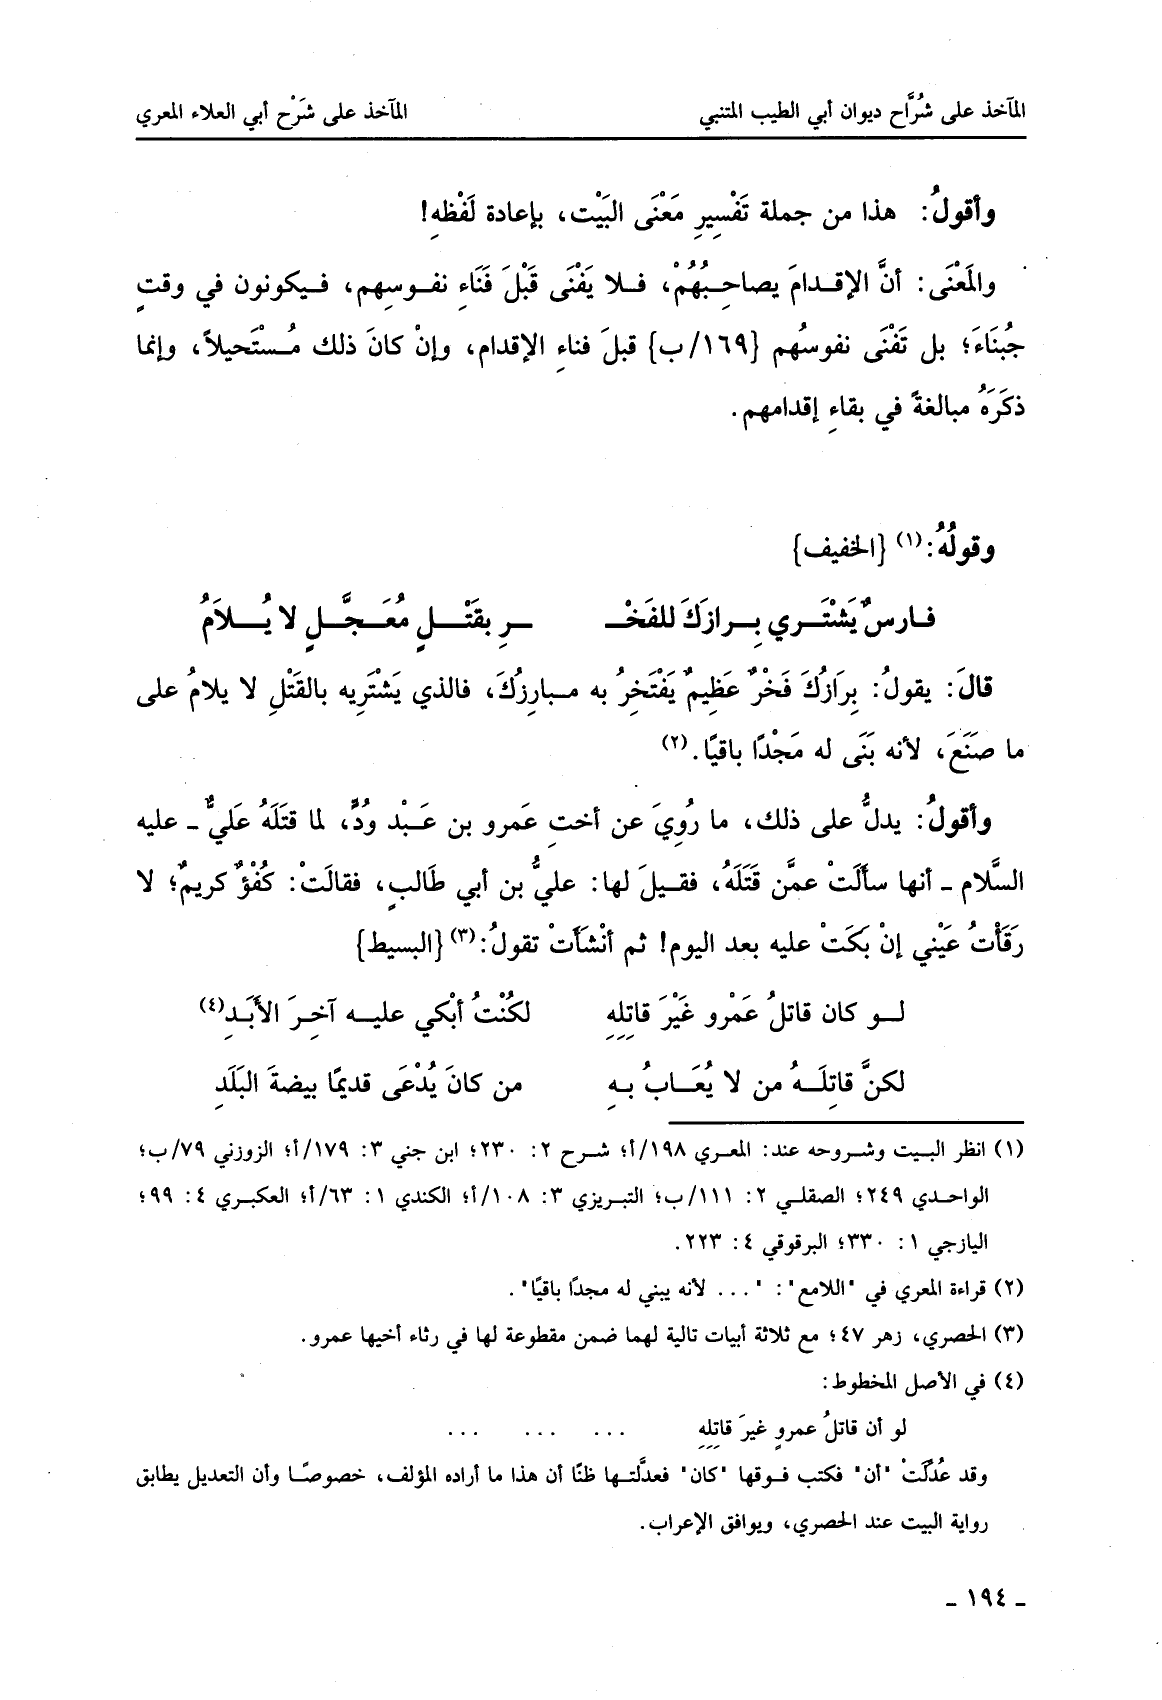 المآخذ على شُرَّاح ديوان أبي الطيب المتنبي المآخذ على شَرْح أبي العلاء المعري
وأقولُ: هذا من جملة تَفْسِيرِ مَعْنَى البَيْت، بإعادة لَفْظهِ!
والمَعْنَى: أنَّ الإقدامَ يصاحِبُهُمْ، فلا يَفْنَى قَبْلَ فَنَاءِ نفوسِهم، فيكونون في وقتٍ
جُبَنَاءَ؛ بل تَفْنَى نفوسُهم {١٦٩/ب} قبلَ فناءِ الإقدام، وإنْ كانَ ذلك مُسْتَحيلاً، وإنما
ذكَرَهُ مبالغةً في بقاءِ إقدامهم.
وقولُهُ:(١) {الخفيف}
فارسٌ يَشْتَري بِرازَكَ للفَخْـ ـرِ بقَتْلٍ مُعَجَّلٍ لا يُلاَمُ
قالَ: يقولُ: بِرَازُكَ فَخْرٌ عَظِيمٌ يَفْتَخِرُ به مبارِزُكَ، فالذي يَشْتَرِيه بالقَتْلِ لا يلامُ على
ما صَنَعَ، لأنه بَنَى له مَجْدًا باقيًا.(٢)
وأقولُ: يدلُّ على ذلك، ما رُوِيَ عن أختِ عَمرو بن عَبْد وُدٍّ، لما قتَلَهُ عَليٌّ ـ عليه
السَّلام ـ أنها سألَتْ عمَّن قَتَلَهُ، فقيلَ لها: عليُّ بن أبي طَالبٍ، فقالَتْ: كُفْؤٌ كريمٌ؛ لا
رَقَأَتْ عَيْني إنْ بَكَتْ عليه بعد اليوم! ثم أنْشَأَتْ تقولُ:(٣) {البسيط}
لو كان قاتلُ عَمْرو غَيْرَ قاتلِهِ لكُنْتُ أبْكي عليه آخِرَ الأَبَدِ(٤)
لكنَّ قاتِلَهُ من لا يُعَابُ بهِ من كانَ يُدْعَى قديمًا بيضةَ البَلَدِ
(١) انظر البيت وشروحه عند: المعري ١٩٨/أ؛ شرح ٢: ٢٣٠؛ ابن جني ٣: ١٧٩/أ؛ الزوزني ٧٩/ب؛
الواحدي ٢٤٩؛ الصقلي ٢: ١١١/ب؛ التبريزي ٣: ١٠٨/أ؛ الكندي ١: ٦٣/أ؛ العكبري ٤: ٩٩؛
اليازجي ١: ٣٣٠؛ البرقوقي ٤: ٢٢٣.
(٢) قراءة المعري في "اللامع": "... لأنه يبني له مجدًا باقيًا".
(٣) الحصري، زهر ٤٧؛ مع ثلاثة أبيات تالية لهما ضمن مقطوعة لها في رثاء أخيها عمرو.
(٤) في الأصل المخطوط:
لو أن قاتلُ عمروٍ غيرَ قاتِلِهِ ... ... ...
وقد عُدِّلَتْ "أن" فكتب فوقها "كان" فعدَّلتها ظنًا أن هذا ما أراده المؤلف، خصوصًا وأن التعديل يطابق
رواية البيت عند الحصري، ويوافق الإعراب.
ـ ١٩٤ ـ